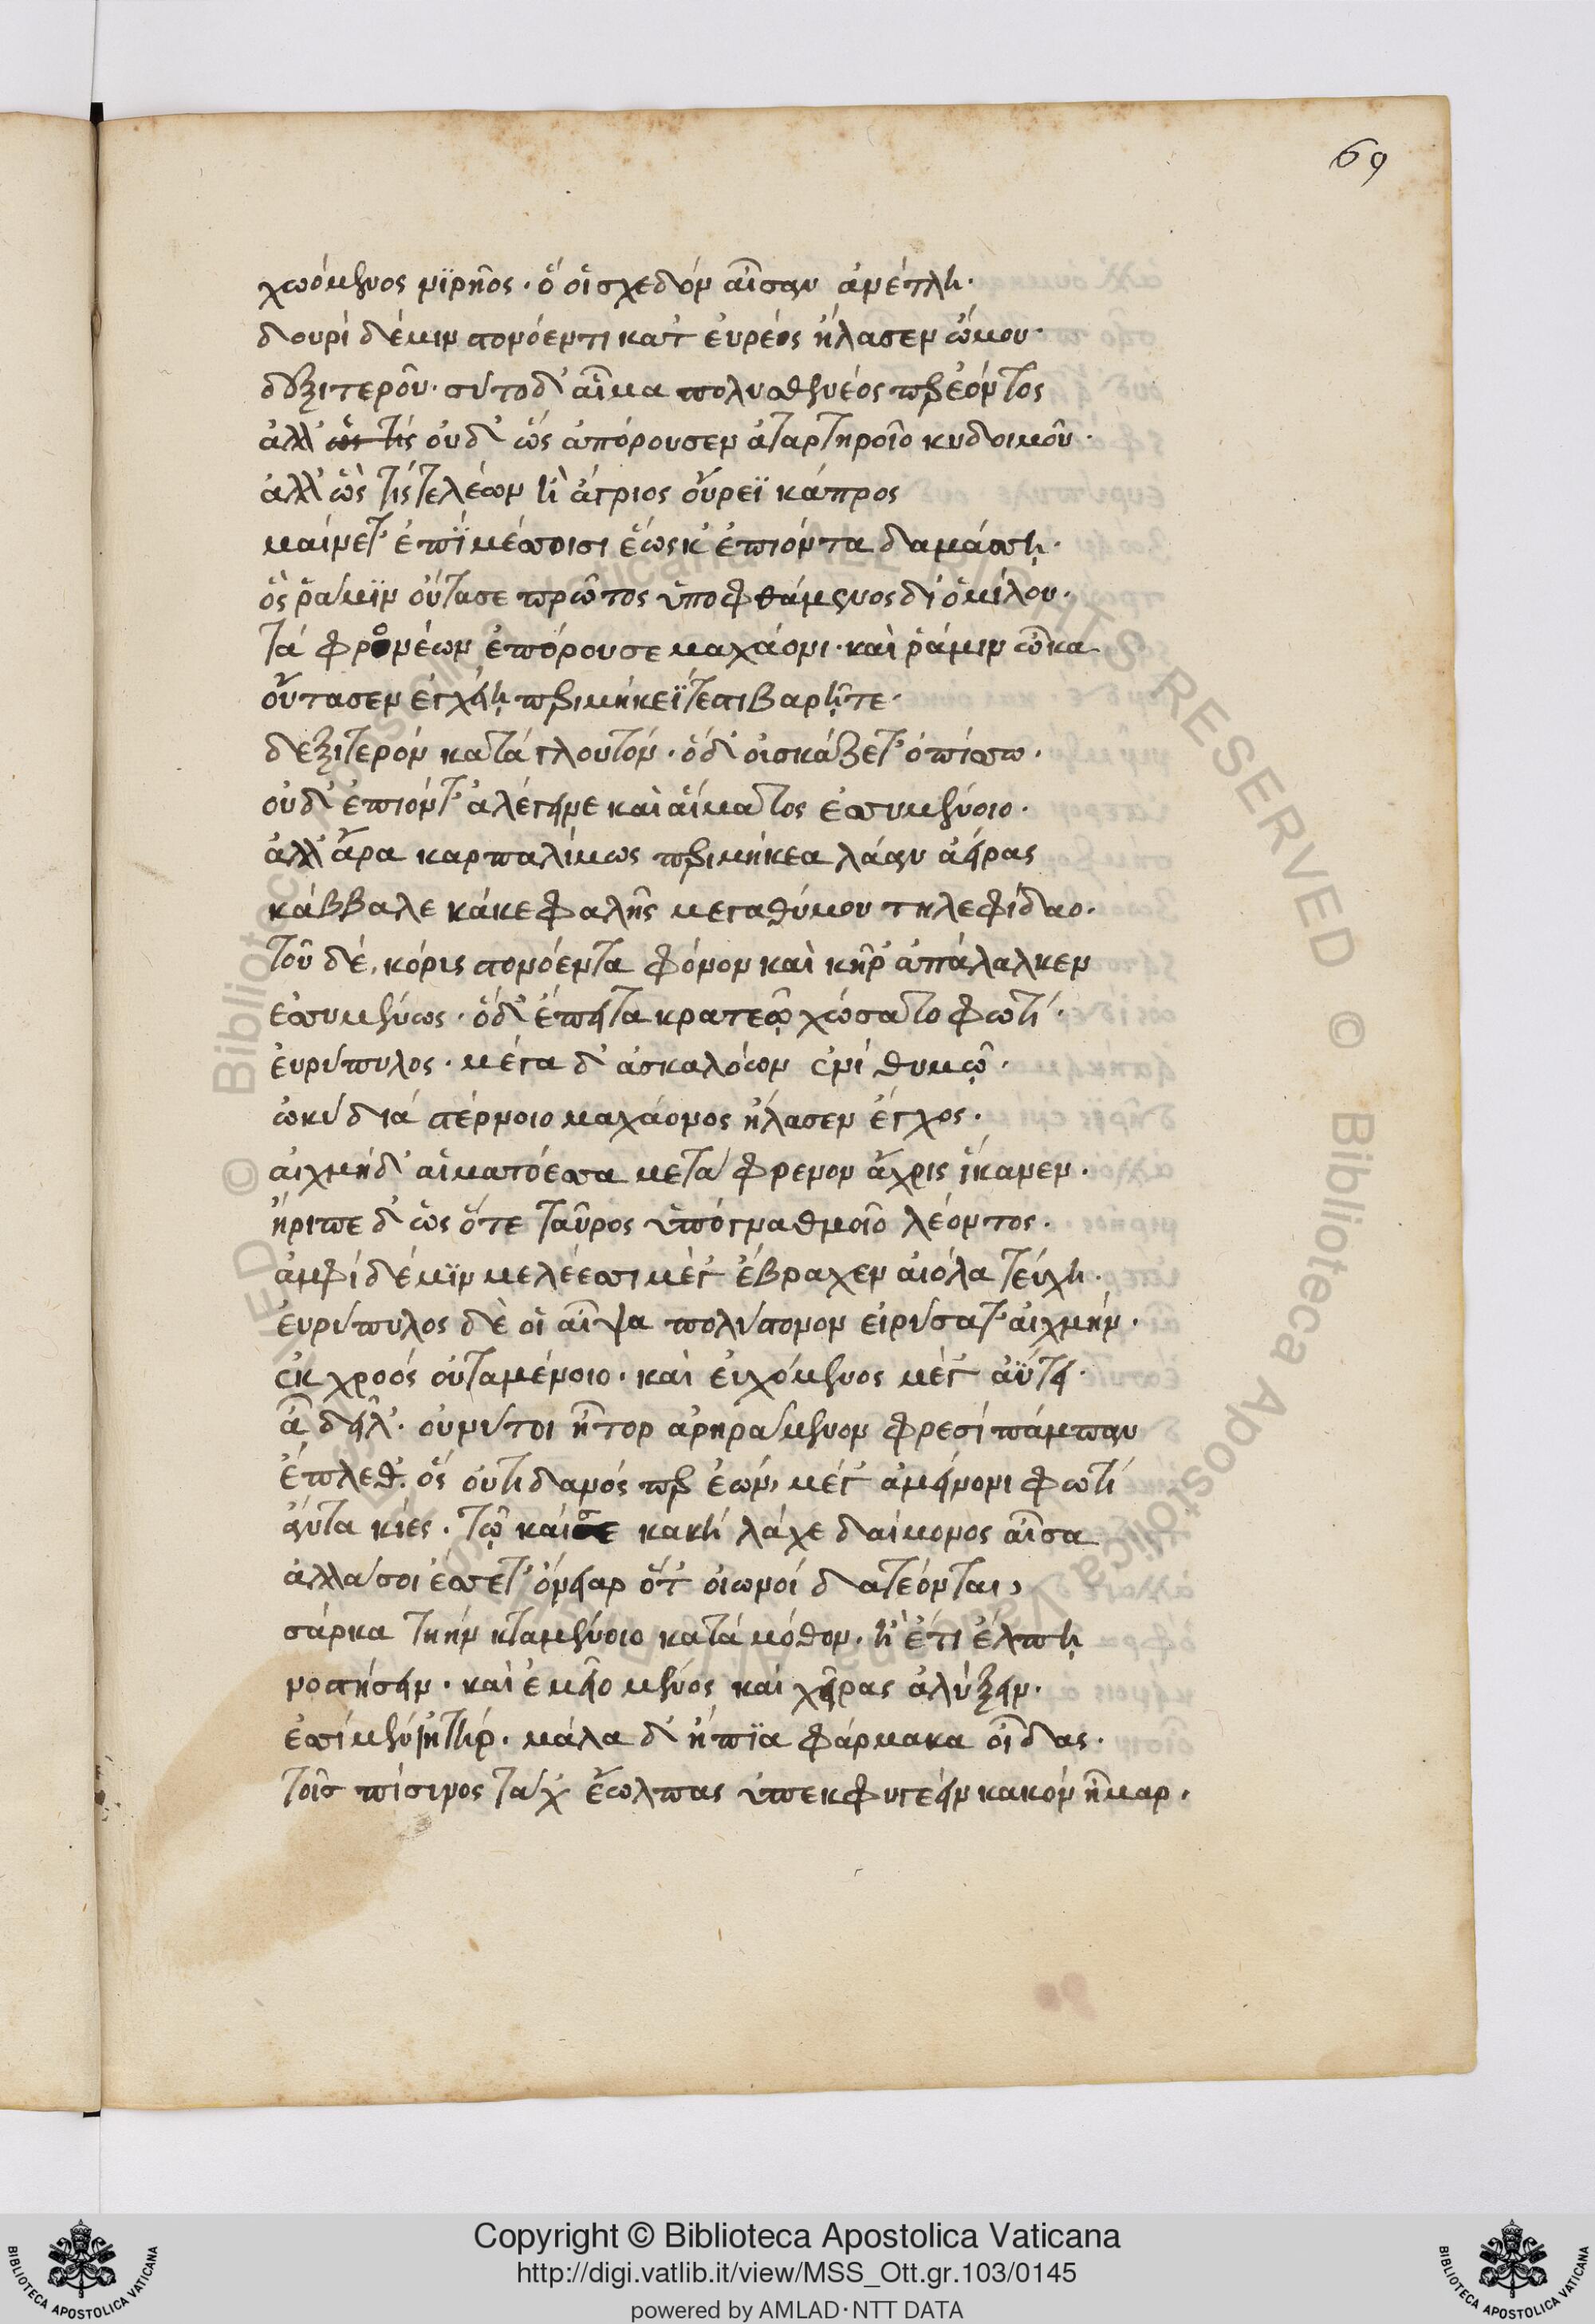 69
χωόμενος νϊρῆος. ὅ οἱ σχεδόν αἶσαν ἀνέτλη.
δουρί δέ μιν στονόεντι κατ' εὐρέος ἤλασεν ὤμου.
δεξιτεροῦ. σύτο δ' αἷμα πολυσθενέος περ ἐόντος
ἀλλ' ὥς τίς οὐδ' ὥς ἀπόρουσεν ἀταρτηροῖο κυδοιμοῦ.
ἀλλ' ὥς τίς τε λέων ἢ ἄγριος οὔρεϊ κάπρος
μαίνετ' ἐπϊ μέσσοισι ἕως κ' ἐπιόντα δαμάσση.
ὅς ῥά μϊν οὔτασε πρῶτος ὑποφθάμενος δι' ὁμίλου.
τά φρονέων ἐπόρουσε μαχάονι. καὶ ῥά μιν ὦκα
οὔτασεν ἐγχείη περιμήκεϊ τε στιβαρῇ τε.
δεξιτερόν κατά γλουτόν. ὅ δ' οὐ σκάζετ' ὀπίσσω.
οὐδ' ἐπιόντ' ἀλέγεινε καὶ αἵματος ἐσσυμένοιο.
ἀλλ' ἄρα καρπαλίμως περιμήκεα λάαν ἀείρας
κάββαλε κάκ κεφαλῆς μεγαθύμου τηλεφίδαο.
τοῦ δέ, κόρις στονόεντα φόνον καὶ κῆρ' ἀπάλαλκεν
ἐσσυμένως. ὅ δ' ἔπειτα κρατεῷ χώσατο φωτί.
ἐυρύπυλος. μέγα δ' ἀσκαλόων ἐνί θυμῷ.
ὠκύ διά στέρνοιο μαχάονος ἤλασεν ἔγχος.
αἰχμή δ' αἱματόεσσα μετά φρενον ἄχρις ἵκανεν.
ἤριπε δ' ὥς ὅτε ταῦρος ὑπό γναθμοῖο λέοντος.
ἀμφί δέ μϊν μελέεσσι μέγ' ἔβραχεν αἰόλα τεύχη.
ἐυρύπυλος δέ οἱ αἶψα πολύστονον εἰρύσατ' αἰχμήν.
ἐκ χροός οὐταμένοιο. καὶ εὐχόμενος μέγ' ἀΰτει.
ἆ δείλ'. οὔ νύ τοι ἦτορ ἀρηράμενον φρεσί πάμπαν
ἔπλεθ'. ὅς οὐτιδανός περ ἐών, μέγ' ἀμείνονι φωτί
ἄντα κίες. τῷ καί σε κακή λάχε δαίμονος αἶσα
ἀλλά σοι ἔσσετ' ὄνειαρ ὅτ' οἰωνοί δατέονται,
σάρκα τηήν κταμένοιο κατά μόθον. ἦ ἔτι ἔλπῃ
νοστήσειν. καὶ ἐμεῖο μένος καὶ χεῖρας ἀλύξειν.
ἐσσί μέν ἰητήρ. μάλα δ' ἤπϊα φάρμακα οἶδας.
τοῖσ πίσυνος τάχ' ἔωλπας ὑπεκφυγέειν κακόν ἦμαρ.
Copyright © Biblioteca Apostolica Vaticana
http://digi.vatlib.it/view/MSS_Ott.gr.103/0145
powered by AMLAD·NTT DATA